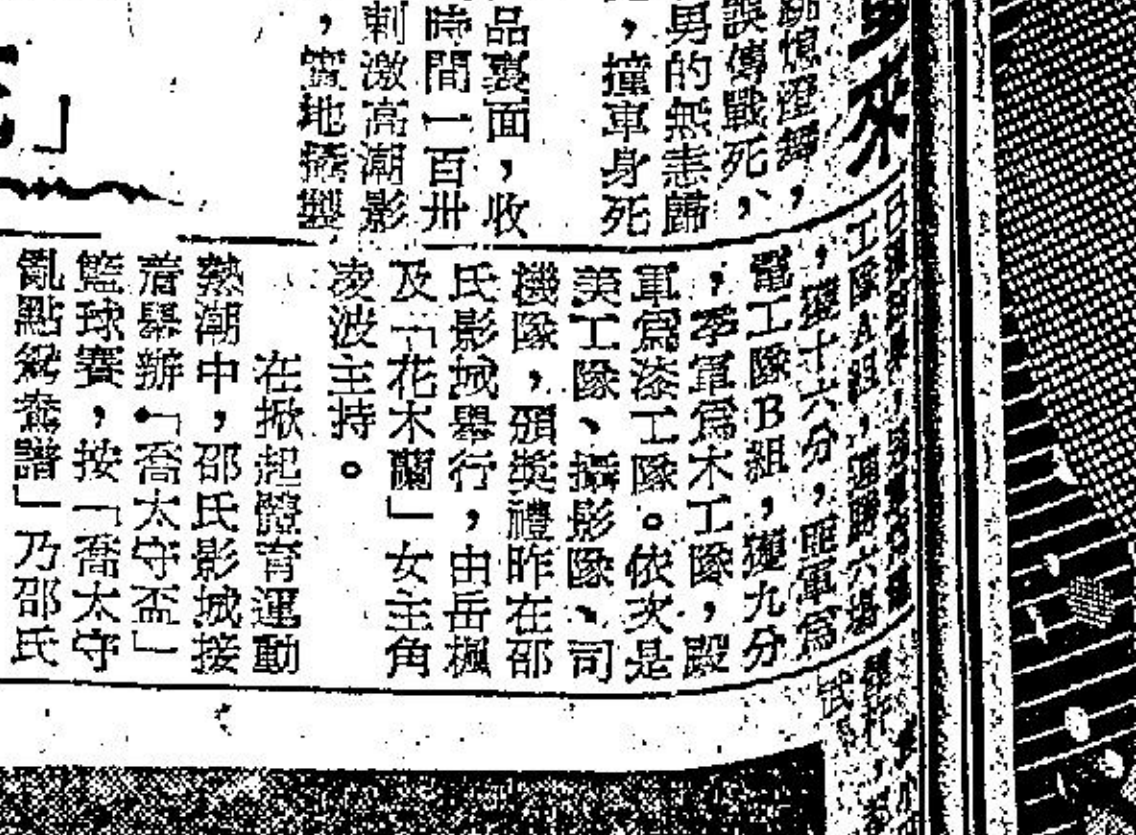 來
熄燈舞，
誤傳戰死、
男的無恙歸
，撞車身死
品裏面，收
時間一百卅
刺激高潮影
，實地攝製
」
工隊A組，
，獲十六分，亞軍爲
電工隊B組，獲九分
，季軍爲木工隊，殿
軍爲漆工隊。依次是
美工隊、攝影隊、司
機隊，頒獎禮昨在邵
氏影城舉行，由岳楓
及「花木蘭」女主角
凌波主持。
在掀起體育運動
熱潮中，邵氏影城接
着舉辦「喬太守盃」
籃球賽，按「喬太守
亂點鴛鴦譜」乃邵氏